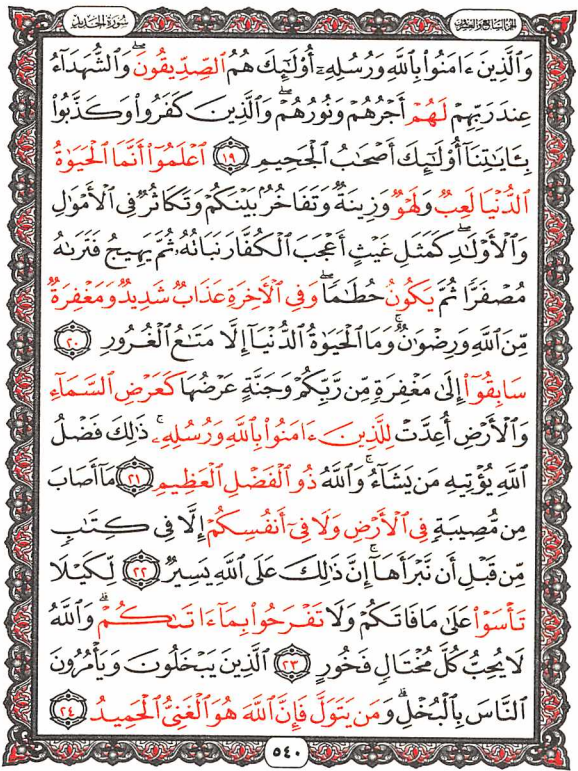 سُورَةُ الحَدِيدِ الجُزْءُ السَّابِعُ وَالعِشْرُونَ
وَٱلَّذِينَ ءَامَنُوا۟ بِٱللَّهِ وَرُسُلِهِۦٓ أُو۟لَٰٓئِكَ هُمُ ٱلصِّدِّيقُونَ ۖ وَٱلشُّهَدَآءُ
عِندَ رَبِّهِمْ لَهُمْ أَجْرُهُمْ وَنُورُهُمْ ۖ وَٱلَّذِينَ كَفَرُوا۟ وَكَذَّبُوا۟
بِـَٔايَٰتِنَآ أُو۟لَٰٓئِكَ أَصْحَٰبُ ٱلْجَحِيمِ ١٩ ٱعْلَمُوٓا۟ أَنَّمَا ٱلْحَيَوٰةُ
ٱلدُّنْيَا لَعِبٌ وَلَهْوٌ وَزِينَةٌ وَتَفَاخُرٌۢ بَيْنَكُمْ وَتَكَاثُرٌ فِى ٱلْأَمْوَٰلِ
وَٱلْأَوْلَٰدِ ۖ كَمَثَلِ غَيْثٍ أَعْجَبَ ٱلْكُفَّارَ نَبَاتُهُۥ ثُمَّ يَهِيجُ فَتَرَىٰهُ
مُصْفَرًّا ثُمَّ يَكُونُ حُطَٰمًا ۖ وَفِى ٱلْـَٔاخِرَةِ عَذَابٌ شَدِيدٌ وَمَغْفِرَةٌ
مِّنَ ٱللَّهِ وَرِضْوَٰنٌ ۚ وَمَا ٱلْحَيَوٰةُ ٱلدُّنْيَآ إِلَّا مَتَٰعُ ٱلْغُرُورِ ٢٠
سَابِقُوٓا۟ إِلَىٰ مَغْفِرَةٍ مِّن رَّبِّكُمْ وَجَنَّةٍ عَرْضُهَا كَعَرْضِ ٱلسَّمَآءِ
وَٱلْأَرْضِ أُعِدَّتْ لِلَّذِينَ ءَامَنُوا۟ بِٱللَّهِ وَرُسُلِهِۦ ۚ ذَٰلِكَ فَضْلُ
ٱللَّهِ يُؤْتِيهِ مَن يَشَآءُ ۚ وَٱللَّهُ ذُو ٱلْفَضْلِ ٱلْعَظِيمِ ٢١ مَآ أَصَابَ
مِن مُّصِيبَةٍ فِى ٱلْأَرْضِ وَلَا فِىٓ أَنفُسِكُمْ إِلَّا فِى كِتَٰبٍ
مِّن قَبْلِ أَن نَّبْرَأَهَآ ۚ إِنَّ ذَٰلِكَ عَلَى ٱللَّهِ يَسِيرٌ ٢٢ لِّكَيْلَا
تَأْسَوْا۟ عَلَىٰ مَا فَاتَكُمْ وَلَا تَفْرَحُوا۟ بِمَآ ءَاتَىٰكُمْ ۗ وَٱللَّهُ
لَا يُحِبُّ كُلَّ مُخْتَالٍ فَخُورٍ ٢٣ ٱلَّذِينَ يَبْخَلُونَ وَيَأْمُرُونَ
ٱلنَّاسَ بِٱلْبُخْلِ ۗ وَمَن يَتَوَلَّ فَإِنَّ ٱللَّهَ هُوَ ٱلْغَنِىُّ ٱلْحَمِيدُ ٢٤
٥٤٠